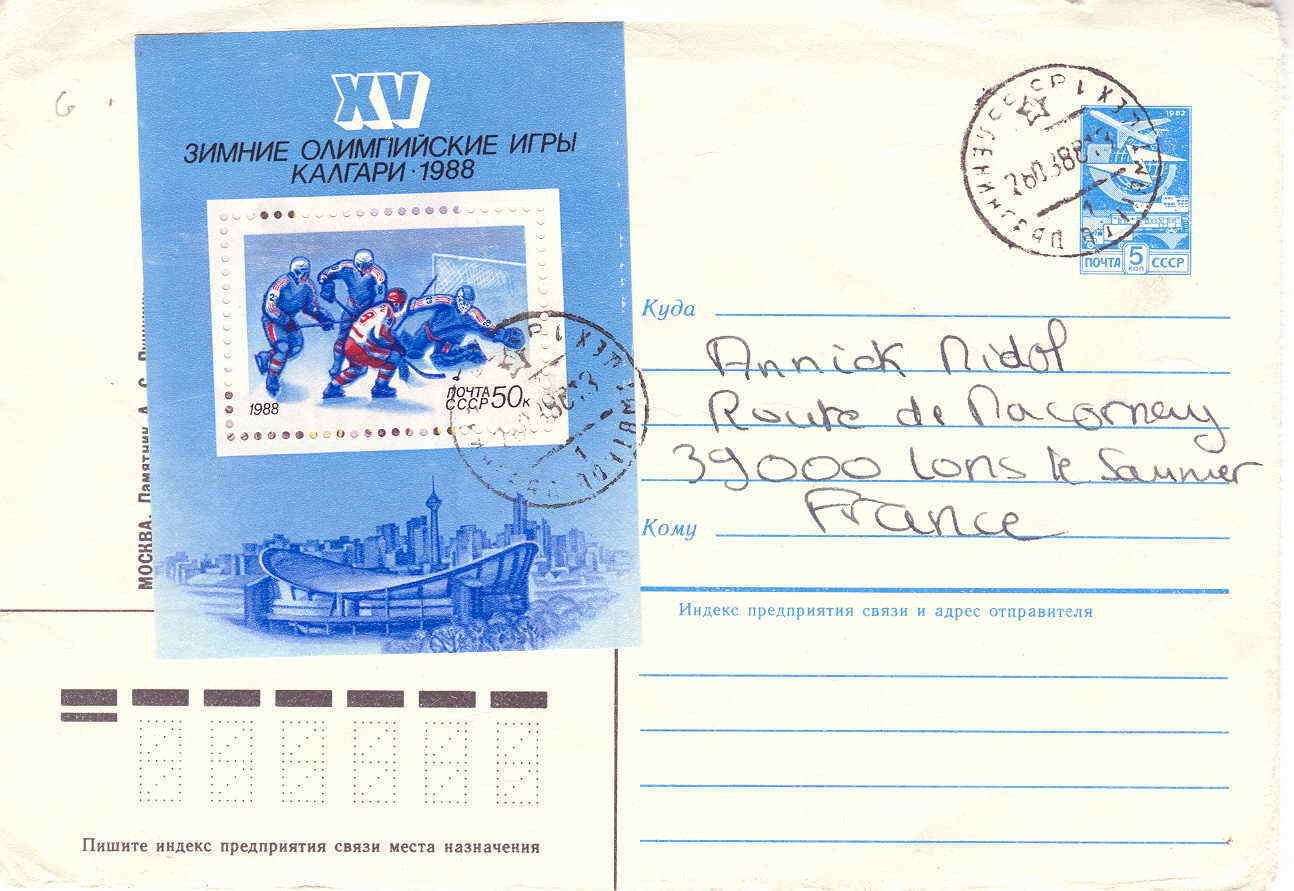 XV
ЗИМНИЕ ОЛИМПИЙСКИЕ ИГРЫ
КАЛГАРИ · 1988
1988
ПОЧТА
СССР 50к
МОСКВА. Памятник А. С.
1982
ПОЧТА 5 коп СССР
Куда
Annick Nidol
Route de Macornay
39000 Lons le Saunier
France
Кому
Индекс предприятия связи и адрес отправителя
Пишите индекс предприятия связи места назначения